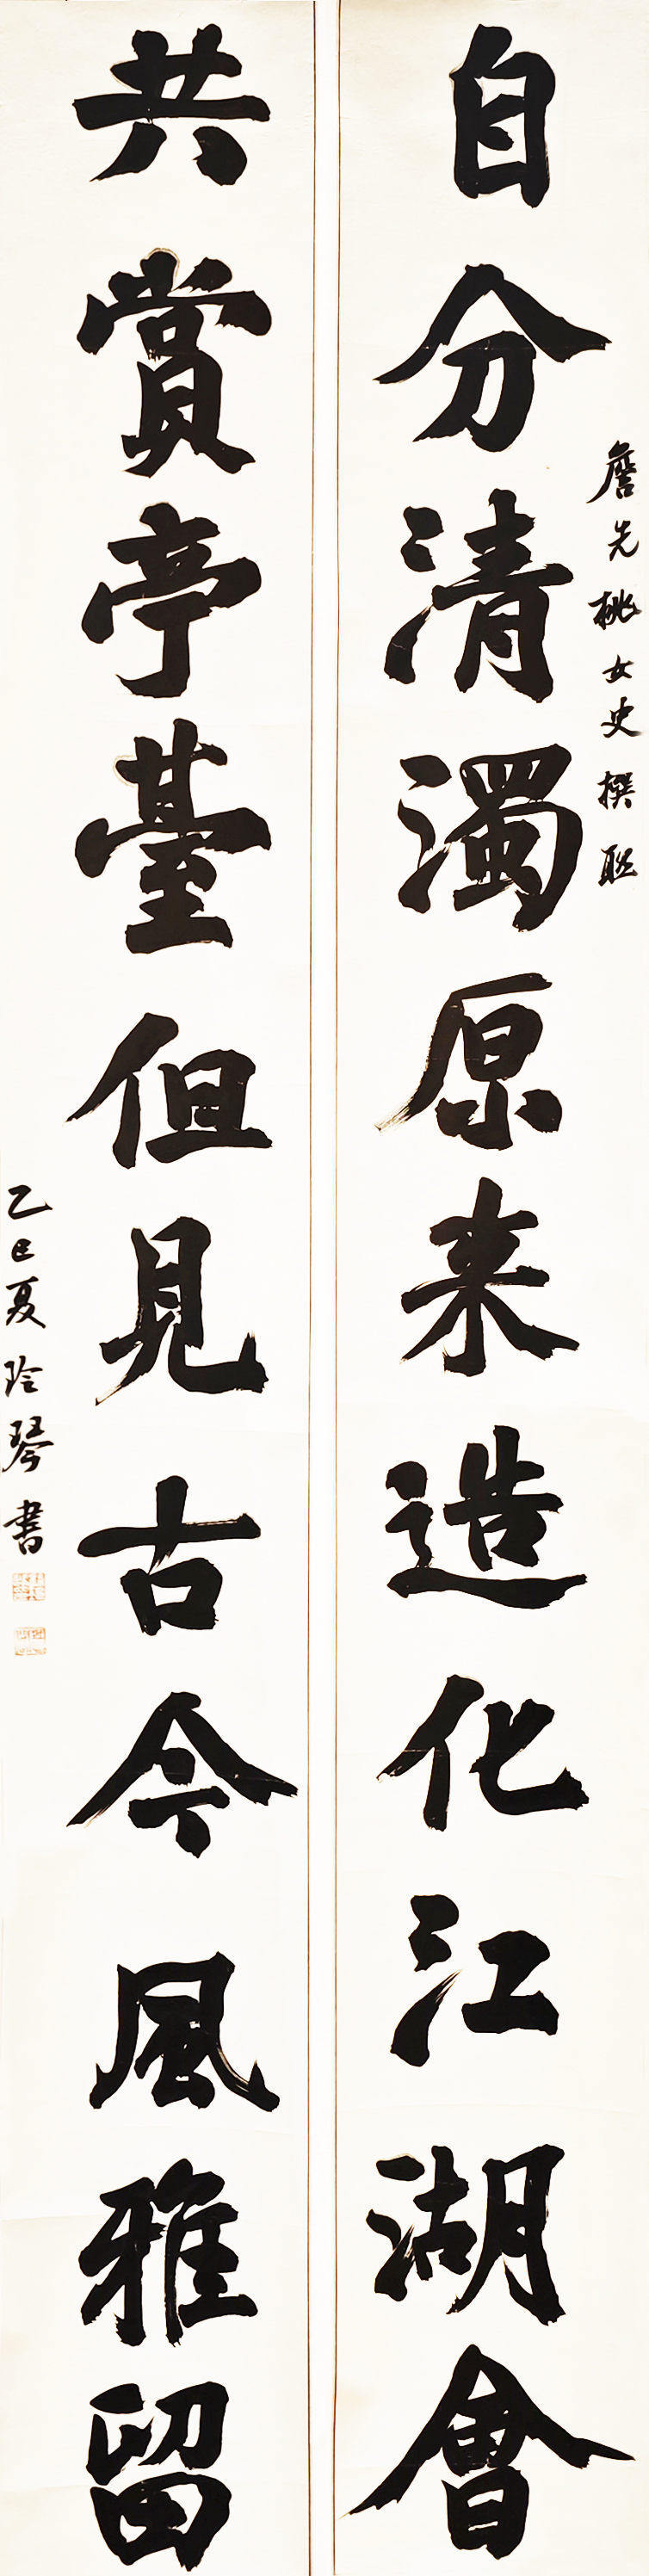 自分清濁原来造化江湖會
詹先桃女史撰聯
共賞亭臺但見古今風雅留
乙巳夏玲琴書